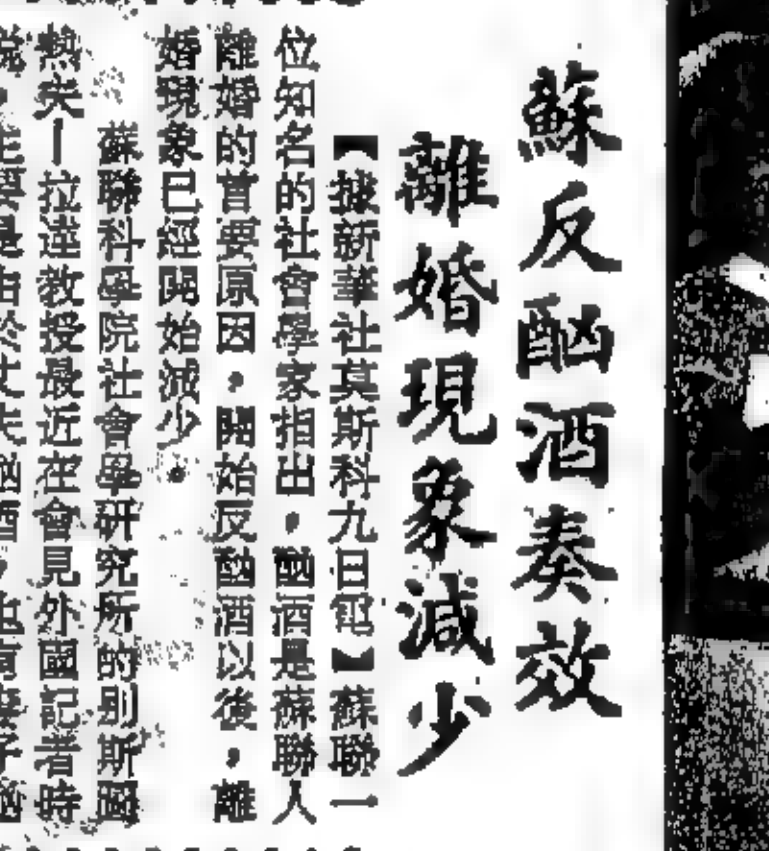 蘇反酗酒奏效
離婚現象減少
【據新華社莫斯科九日電】蘇聯一
位知名的社會學家指出，酗酒是蘇聯人
離婚的首要原因，開始反酗酒以後，離
婚現象已經開始減少。
蘇聯科學院社會學研究所的別斯圖
熱夫—拉達教授最近在會見外國記者時